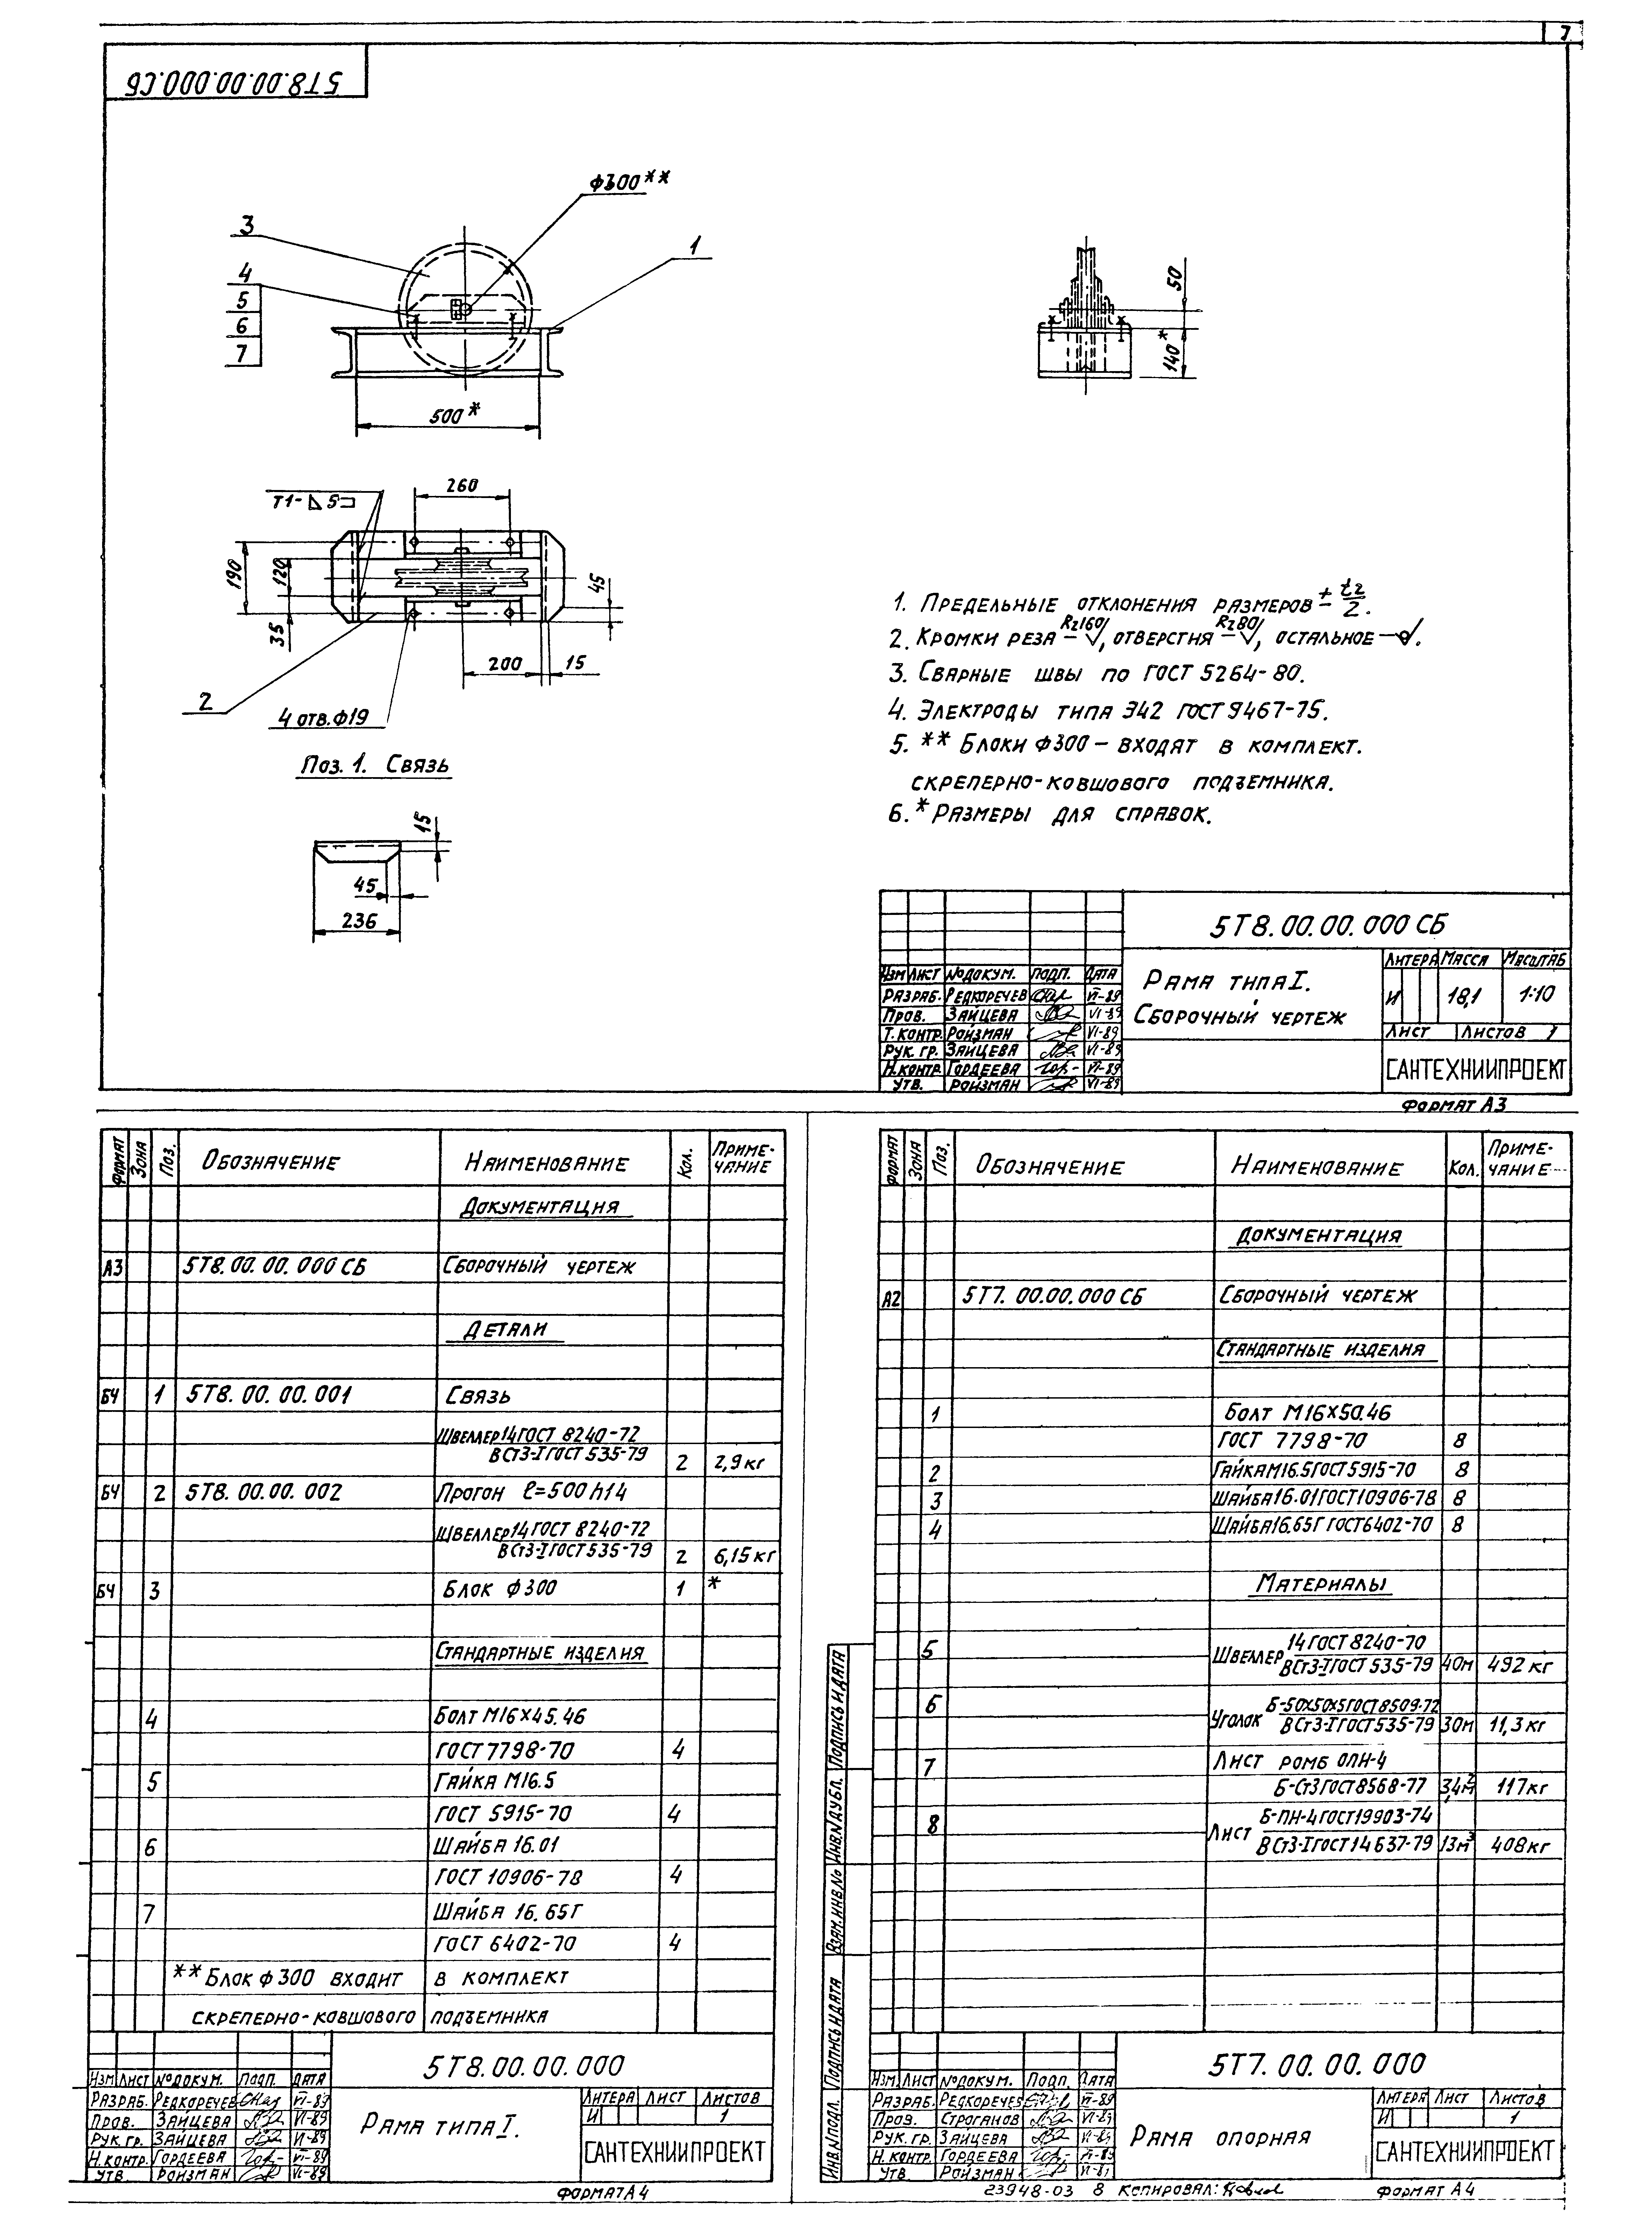 7
5Т8.00.00.000.СБ
Ф300**
3
1
4
5
6
7
500*
50
140*
Т1-◺5⊐
260
190
120
35
45
200
15
2
4 отв. Ф19
Поз. 1. Связь
15
45
236
1. Предельные отклонения размеров ± t2/2.
2. Кромки реза – Rz160, отверстия – Rz80, остальное –
3. Сварные швы по ГОСТ 5264-80.
4. Электроды типа Э42 ГОСТ 9467-75.
5. ** Блоки Ф300 – входят в комплект.
скреперно-ковшового подъемника.
6. * Размеры для справок.
5Т8.00.00.000 СБ
Рама типа I.
Сборочный чертеж
Литера Масса Масштаб
И 18,1 1:10
Лист Листов 1
САНТЕХНИИПРОЕКТ
Изм Лист № докум. Подп. Дата
Разраб. Редкоречев VI-89
Пров. Зайцева VI-89
Т. контр. Ройзман VI-89
Рук. гр. Зайцева VI-89
Н. контр. Гордеева VI-89
Утв. Ройзман VI-89
Формат А3
Формат Зона Поз. Обозначение Наименование Кол. Примечание
Документация
А3 5Т8.00.00.000 СБ Сборочный чертеж
Детали
БЧ 1 5Т8.00.00.001 Связь
Швеллер 14 ГОСТ 8240-72
ВСт3-I ГОСТ 535-79 2 2,9 кг
БЧ 2 5Т8.00.00.002 Прогон ℓ=500h14
Швеллер 14 ГОСТ 8240-72
ВСт3-I ГОСТ 535-79 2 6,15 кг
БЧ 3 Блок Ф300 1 *
Стандартные изделия
4 Болт М16×45.46
ГОСТ 7798-70 4
5 Гайка М16.5
ГОСТ 5915-70 4
6 Шайба 16.01
ГОСТ 10906-78 4
7 Шайба 16.65Г
ГОСТ 6402-70 4
** Блок Ф300 входит в комплект
скреперно-ковшового подъемника
5Т8.00.00.000
Изм Лист № докум. Подп. Дата
Разраб. Редкоречев VI-89
Пров. Зайцева VI-89
Рук. гр. Зайцева VI-89
Н. контр. Гордеева VI-89
Утв. Ройзман VI-89
Рама типа I.
Литера Лист Листов
И 1
САНТЕХНИИПРОЕКТ
Формат А4
Формат Зона Поз. Обозначение Наименование Кол. Примечание
Документация
А2 5Т7.00.00.000 СБ Сборочный чертеж
Стандартные изделия
1 Болт М16×50.46
ГОСТ 7798-70 8
2 Гайка М16.5 ГОСТ 5915-70 8
3 Шайба 16.01 ГОСТ 10906-78 8
4 Шайба 16.65Г ГОСТ 6402-70 8
Материалы
5 Швеллер 14 ГОСТ 8240-70
ВСт3-I ГОСТ 535-79 40м 492 кг
6 Уголок Б-50×50×5 ГОСТ 8509-72
ВСт3-I ГОСТ 535-79 30м 11,3 кг
7 Лист ромб ОПН-4
Б-Ст3 ГОСТ 8568-77 3,4м² 117 кг
8 Лист Б-ПН-4 ГОСТ 19903-74
ВСт3-I ГОСТ 14637-79 13м³ 408 кг
Подпись и дата
Инв. № дубл.
Взам. инв. №
Подпись и дата
Инв. № подл.
5Т7.00.00.000
Изм Лист № докум. Подп. Дата
Разраб. Редкоречев VI-89
Пров. Строганов VI-89
Рук. гр. Зайцева VI-89
Н. контр. Гордеева VI-89
Утв. Ройзман
Рама опорная
Литера Лист Листов
И 1
САНТЕХНИИПРОЕКТ
23948-03 8 Копировал:
Формат А4